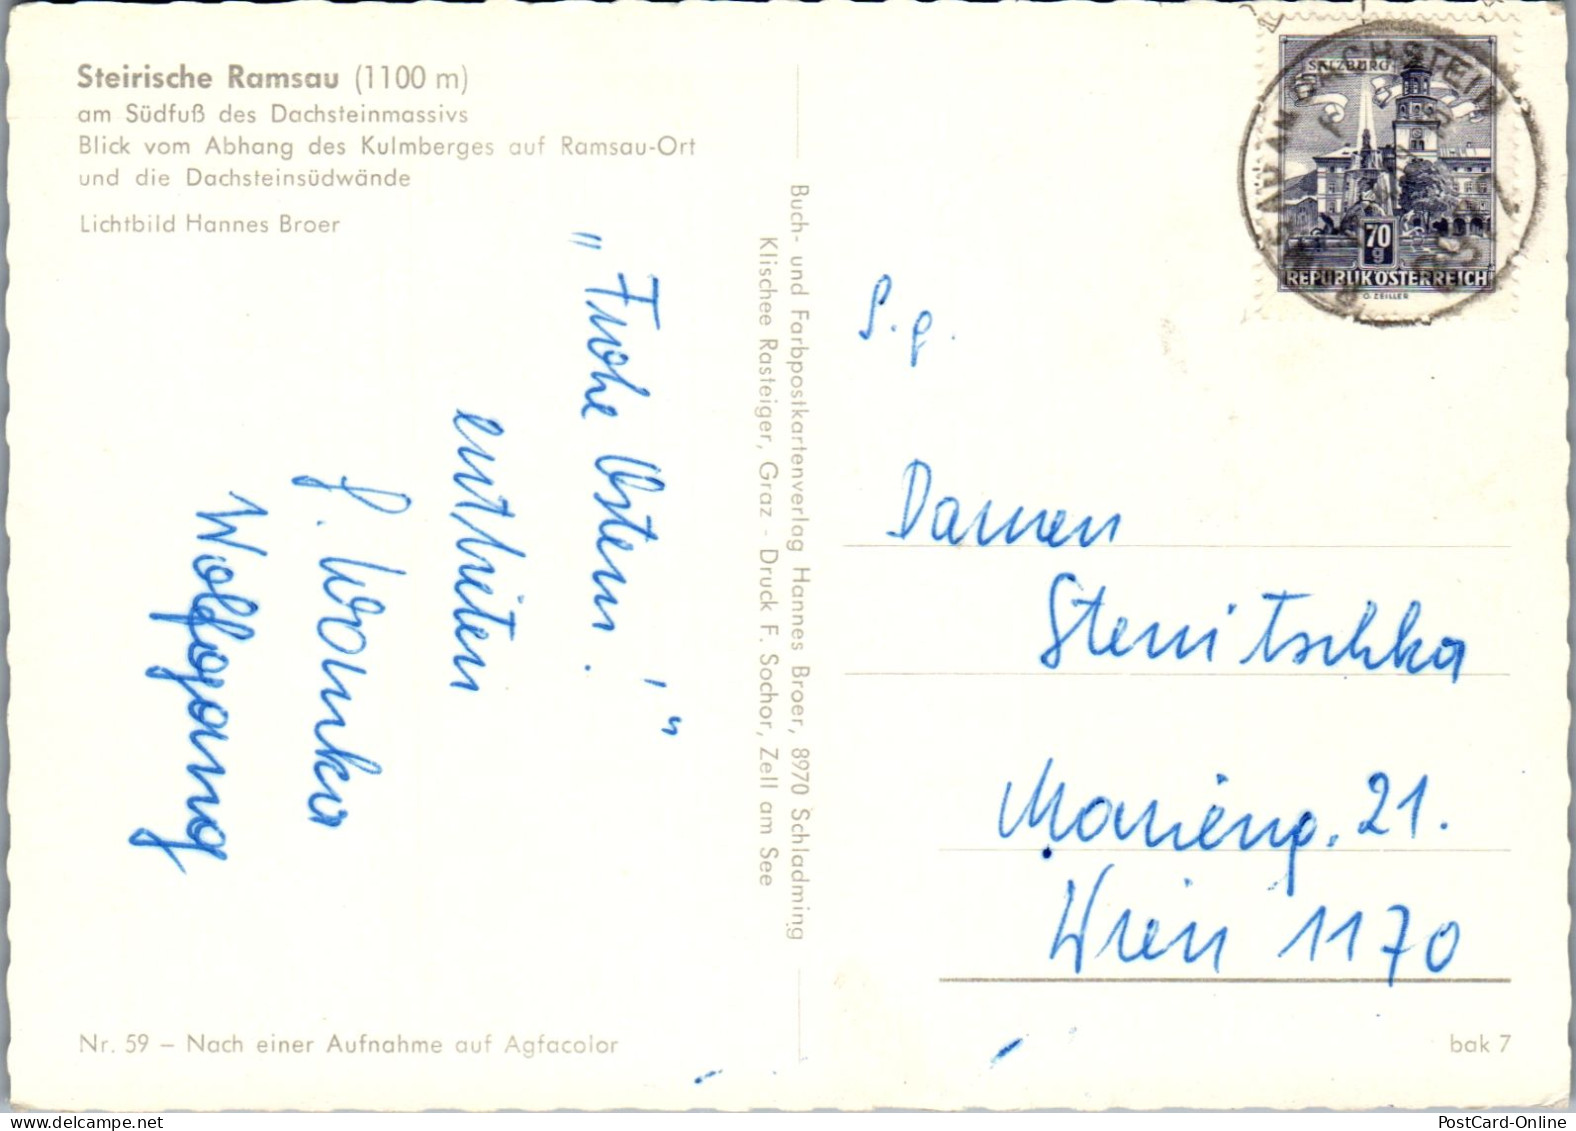 Steirische Ramsau (1100 m)
am Südfuß des Dachsteinmassivs
Blick vom Abhang des Kulmberges auf Ramsau-Ort
und die Dachsteinsüdwände
Lichtbild Hannes Broer
„Frohe Ostern!"
entbieten
Wolfgang
Nr. 59 – Nach einer Aufnahme auf Agfacolor
Buch- und Farbpostkartenverlag Hannes Broer, 8970 Schladming
Klischee Rasteiger, Graz - Druck F. Sochor, Zell am See
SALZBURG
70
g
REPUBLIK ÖSTERREICH
O. ZEILLER
RAMSAU AM DACHSTEIN
S. g.
Damen
Stenitschka
Marieng. 21.
Wien 1170
bak 7
PostCard-Online